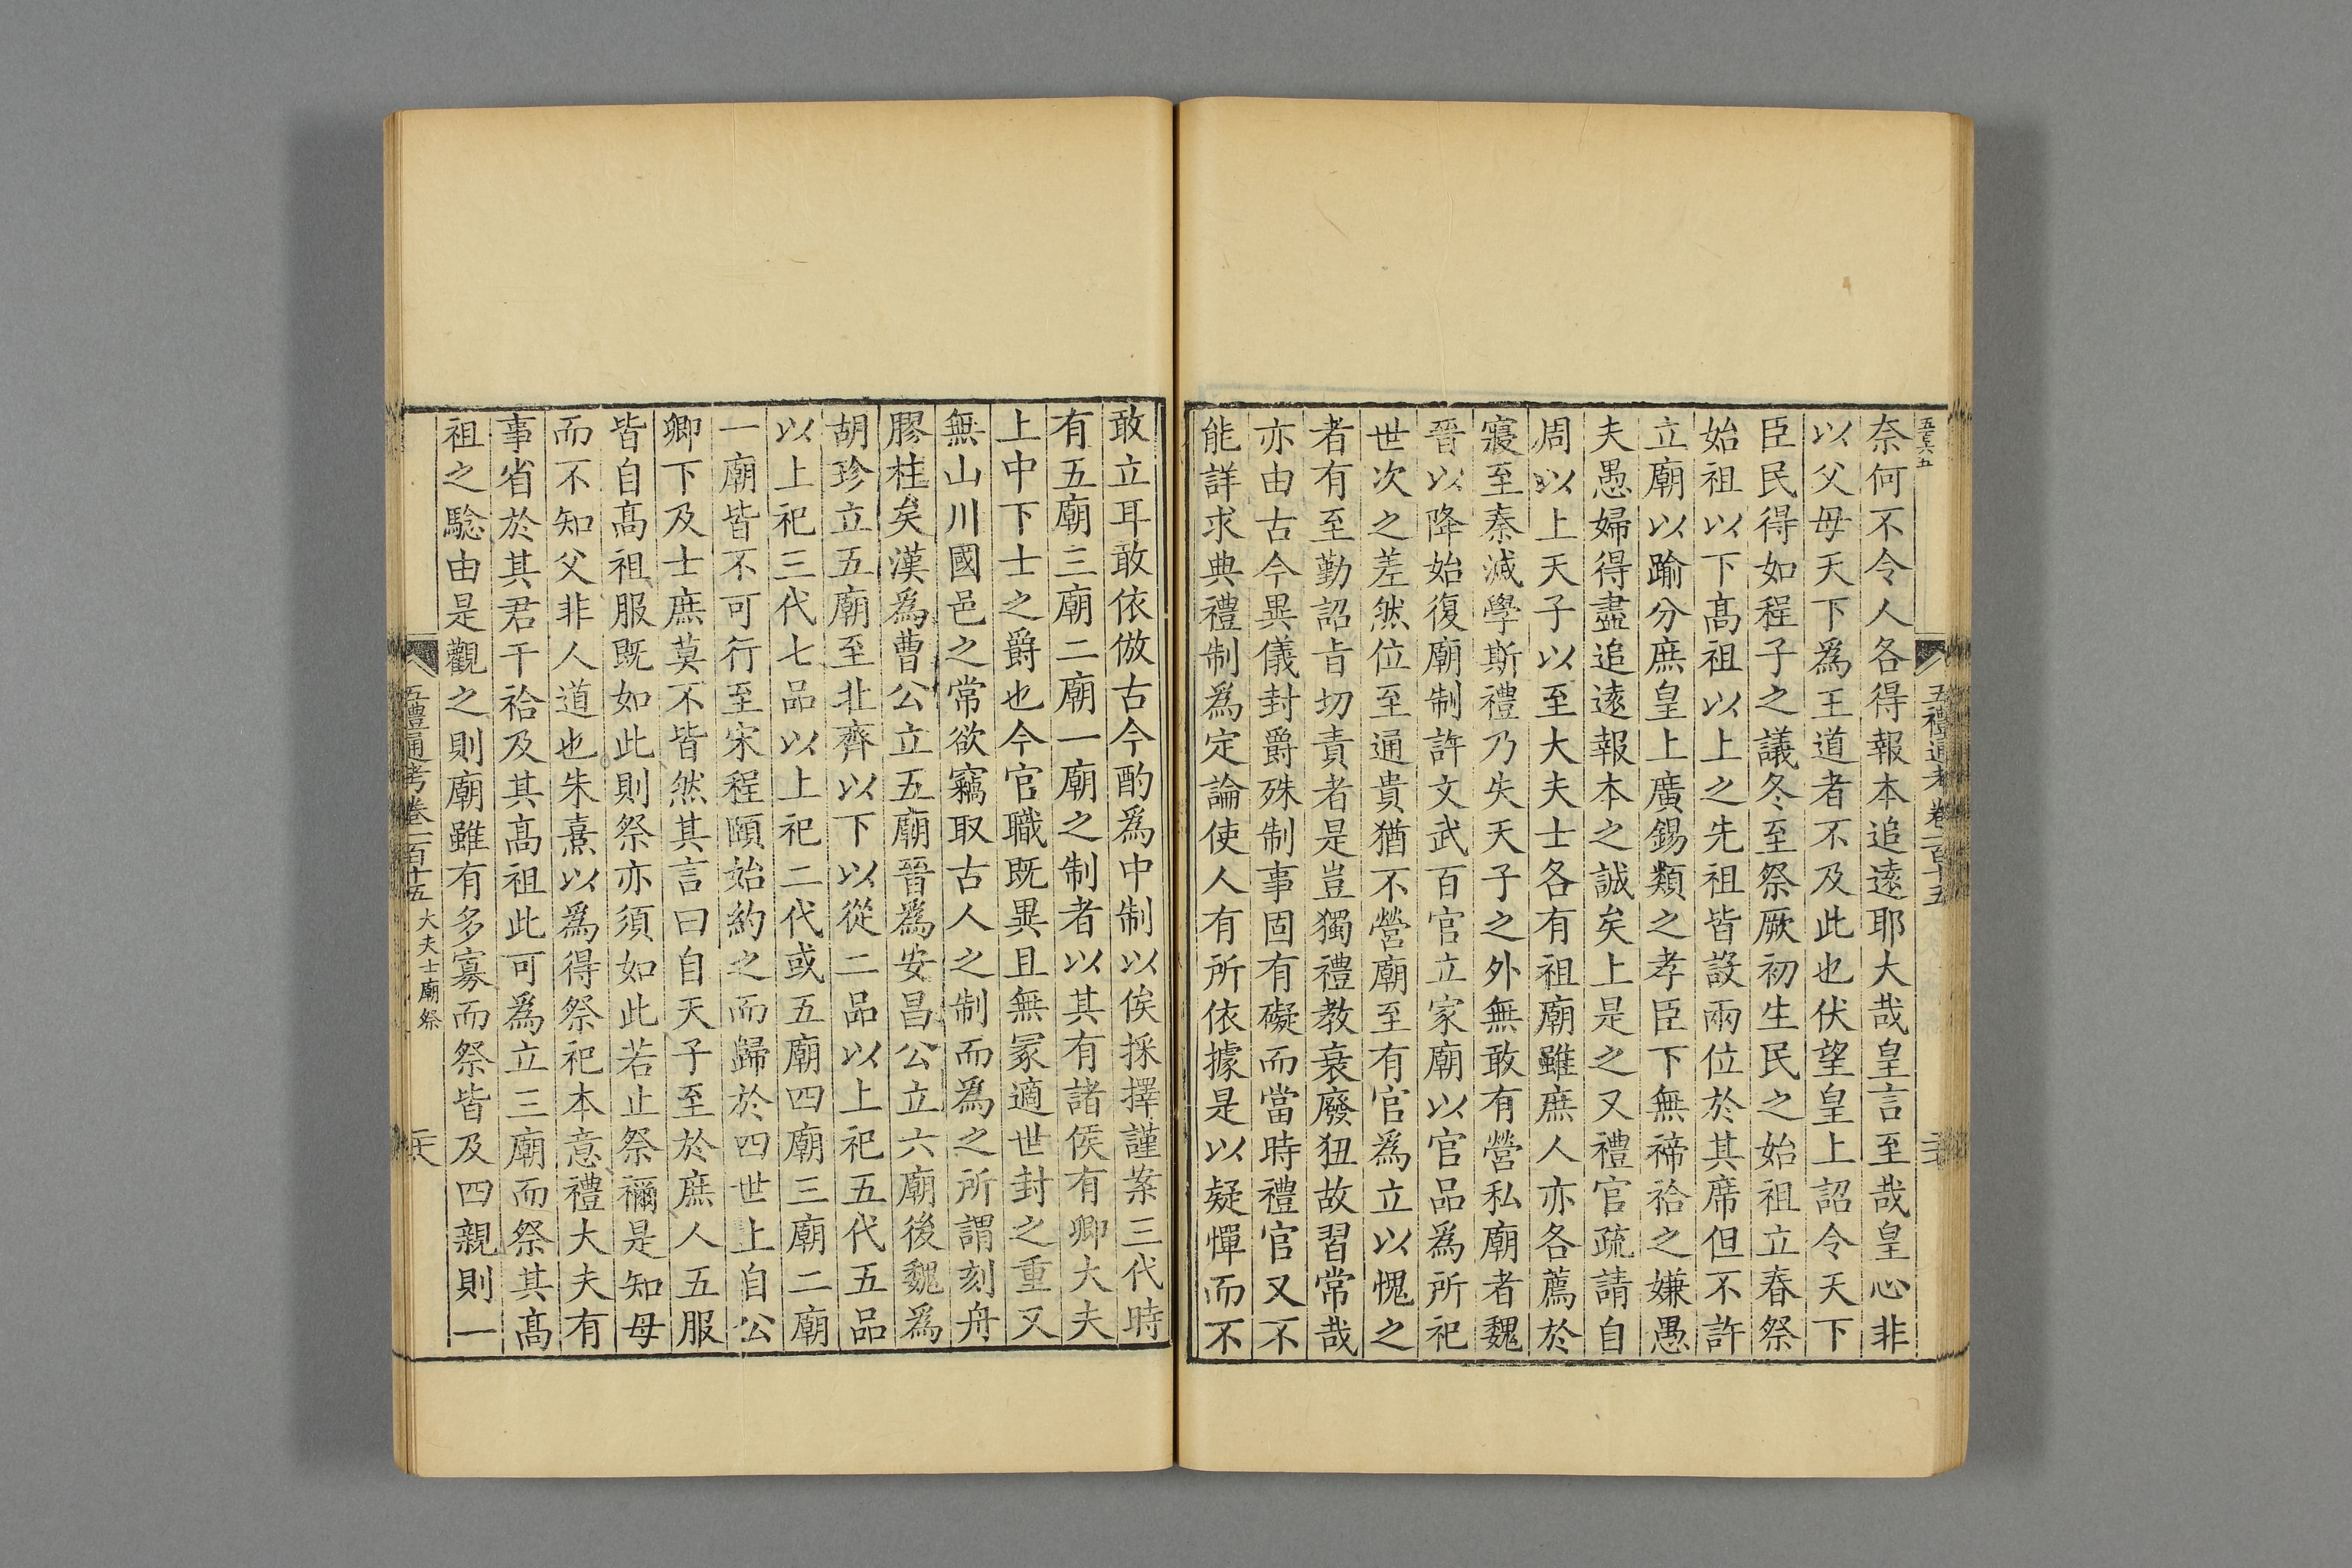 五禮通考卷一百十五
奈何不令人各得報本追逺耶大哉皇言至哉皇心非
以父母天下爲王道者不及此也伏望皇上詔令天下
臣民得如程子之議冬至祭厥初生民之始祖立春祭
始祖以下髙祖以上之先祖皆設兩位於其席但不許
立廟以踰分庶皇上廣錫類之孝臣下無禘祫之嫌愚
夫愚婦得盡追逺報本之誠矣上是之又禮官疏請自
周以上天子以至大夫士各有祖廟雖庶人亦各薦於
寢至秦滅學斯禮乃失天子之外無敢有營私廟者魏
晉以降始復廟制許文武百官立家廟以官品爲所祀
世次之差然位至通貴猶不營廟至有官爲立以愧之
者有至勤詔旨切責者是豈獨禮教衰廢狃故習常哉
亦由古今異儀封爵殊制事固有礙而當時禮官又不
能詳求典禮制爲定論使人有所依據是以疑憚而不
敢立耳敢依倣古今酌爲中制以俟採擇謹案三代時
有五廟三廟二廟一廟之制者以其有諸侯有卿大夫
上中下士之爵也今官職既異且無冢適世封之重又
無山川國邑之常欲竊取古人之制而爲之所謂刻舟
膠柱矣漢爲曹公立五廟晉爲安昌公立六廟後魏爲
胡珍立五廟至北齊以下以從二品以上祀五代五品
以上祀三代七品以上祀二代或五廟四廟三廟二廟
一廟皆不可行至宋程頤始約之而歸於四世上自公
卿下及士庶莫不皆然其言曰自天子至於庶人五服
皆自髙祖服既如此則祭亦須如此若止祭禰是知母
而不知父非人道也朱熹以爲得祭祀本意禮大夫有
事省於其君干祫及其髙祖此可爲立三廟而祭其髙
祖之騐由是觀之則廟雖有多寡而祭皆及四親則一
五禮通考卷一百十五 大夫士廟祭